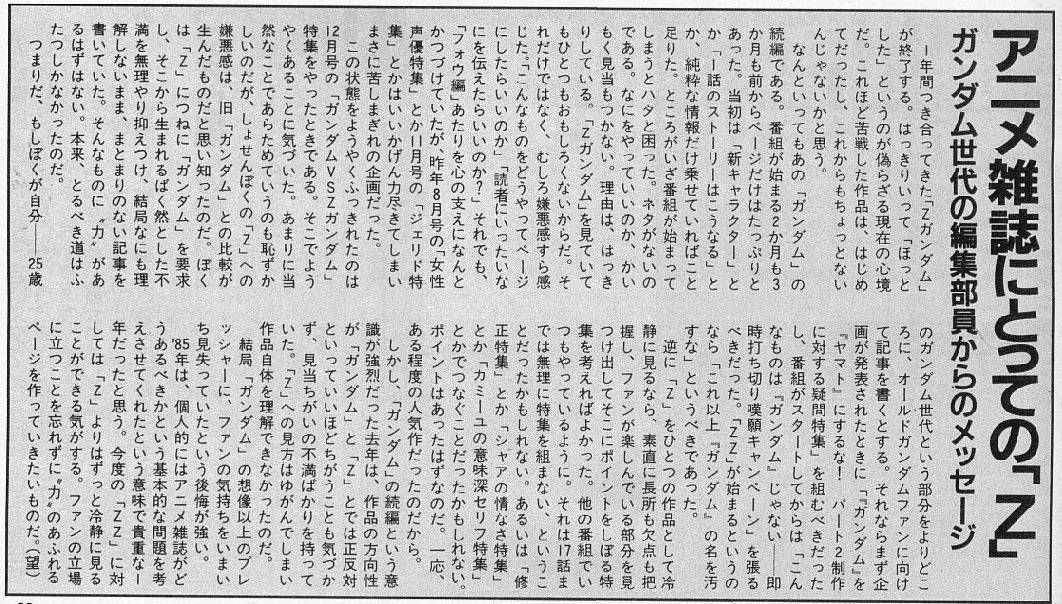 アニメ雑誌にとっての「Z」
ガンダム世代の編集部員からのメッセージ
1年間つき合ってきた「Zガンダム」
が終了する。はっきりいって「ほっと
した」というのが偽らざる現在の心境
だ。これほど苦戦した作品は、はじめ
てだったし、これからもちょっとない
んじゃないかと思う。
なんといってもあの「ガンダム」の
続編である。番組が始まる2か月も3
か月も前からページだけはたっぷりと
あった。当初は「新キャラクター」と
か「1話のストーリーはこうなる」と
か、純粋な情報だけ載せていればこと
足りた。ところがいざ番組が始まって
しまうとハタと困った。ネタがないの
である。なにをやっていいのか、かい
もく見当もつかない。理由は、はっき
りしている。「Zガンダム」を見ていて
もひとつもおもしろくないからだ。そ
れだけではなく、むしろ嫌悪感すら感
じた。"こんなものをどうやってページ
にしたらいいのか""読者にいったいな
にを伝えたらいいのか?"それでも、
「フォウ編」あたりを心の支えになんと
かつづけていたが、昨年8月号の「女性
声優特集」とか11月号の「ジェリド特
集」とかはいいかげん力尽きてしまい
まさに苦しまぎれの企画だった。
この状態をようやくふっきれたのは
12月号の「ガンダムVSZガンダム」
特集をやったときである。そこでよう
やくあることに気づいた。あまりに当
然なことであらためていうのも恥ずか
しいのだが、しょせんぼくの「Z」への
嫌悪感は、旧「ガンダム」との比較が
生んだものだと思い知ったのだ。ぼく
は「Z」につねに「ガンダム」を要求
し、そこから生まれるばく然とした不
満を無理やり抑えつけ、結局なにも理
解しないまま、まとまりのない記事を
書いていた。そんなものに"力"があ
るはずはない。本来、とるべき道はふ
たつしかなかったのだ。
つまりだ、もしぼくが自分——25歳
のガンダム世代という部分をよりどこ
ろに、オールドガンダムファンに向け
て記事を書くとする。それならまず企
画が発表されたときに「『ガンダム』を
『ヤマト』にするな! パート2制作
に対する疑問特集」を組むべきだった
し、番組がスタートしてからは「こん
なものは『ガンダム』じゃない——即
時打ち切り嘆願キャンペーン」を張る
べきだった。「ZZ」が始まるというの
なら「これ以上『ガンダム』の名を汚
すな」というべきであった。
逆に「Z」をひとつの作品として冷
静に見るなら、素直に長所も欠点も把
握し、ファンが楽しんでいる部分を見
つけ出してそこにポイントをしぼる特
集を考えればよかった。他の番組でい
つもやっているように。それは17話ま
では無理に特集を組まない、というこ
とだったかもしれない。あるいは「修
正特集」とか、「シャアの情なさ特集」
とか「カミーユの意味深セリフ特集」
とかでつなぐことだったかもしれない。
ポイントはあったはずなのだ。一応、
ある程度の人気作だったのだから。
しかし、「ガンダム」の続編という意
識が強烈だった去年は、作品の方向性
が「ガンダム」と「Z」とでは正反対
といっていいほどちがうことも気づか
ず、見当ちがいの不満ばかりを持って
いた。「Z」への見方はゆがんでしまい
作品自体を理解できなかったのだ。
結局、「ガンダム」の想像以上のプレ
ッシャーに、ファンの気持ちをいまい
ち見失っていたという後悔が強い。
'85年は、個人的にはアニメ雑誌がど
うあるべきかという基本的な問題を考
えさせてくれたという意味で貴重な一
年だったと思う。今度の「ZZ」に対
しては「Z」よりはずっと冷静に見る
ことができる気がする。ファンの立場
に立つことを忘れずに"力"のあふれる
ページを作っていきたいものだ。(望)